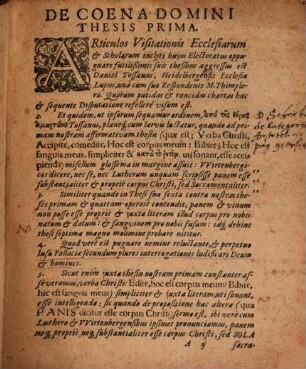 DE COENA DOMINI
THESIS PRIMA.
ARticulos Visitationis Ecclesiarum
& Scholarum inclyti hujus Electoratus oppu-
gnare futilissimis suis thesibus aggressus est
Daniel Tossanus, Heidelbergensis Ecclesiæ
Lupus, unà cum suo Respondente M. Thimple-
ro. Quorum putidas & rancidas chartas hac
& sequente Disputatione refellere visum est.
2. Et quidem, ut ipsorum sequamur ordinem,
Tossanus, planè cum larvis luctatur, quando ad pri-
mam nostram affirmativam thesin (quæ est; Verba Christi,
Accipite, comedite, Hoc est corpus meum: Bibite; Hoc est
sanguis meus, simpliciter & uti sonant, esse acci-
pienda; misellum glossema in margine affuit: VVirtenbergi-
cos dicere, nec se, nec Lutherum unquam scripsisse panem esse
substantialiter & propriè corpus Christi, sed Sacramentaliter.
3. Similiter quando in Thesi sua sexta contra nostras the-
ses primam & quartam operosè contendit, panem & vinum
non posse esse propriè & juxta literam illud corpus pro nobis
natum & datum: & sanguinem pro nobis fusum: idq; dehinc
thesi septima magno molimine probare nititur.
4. Quod verò est pugnare nemine reluctante, & perpetuo
lusu Fallaciæ secundum plures interrogationes ludificari Deum
& homines.
5. Sicut enim juxta thesin nostram primam constanter as-
severamus, verba Christi: Edite, hoc est corpus meum: Bibite,
hic est sanguis meus) simpliciter & juxta literam, uti sonant,
esse intelligenda: sic quando de propositione hac altera (quâ
PANIS dicitur esse corpus Christi) sermo est, ibi verò cum
Luthero & VVirtenbergensibus ipsimet pronunciamus, panem
neq; propriè, neq; substantialiter esse corpus Christi, sed SOLA
A ij sacra-